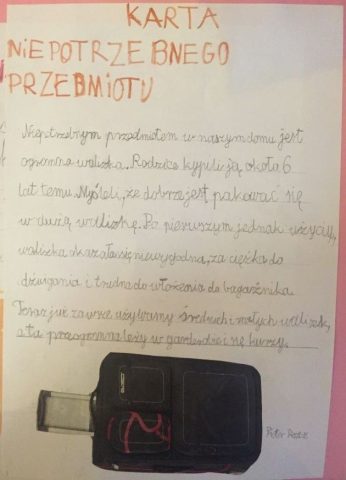 KARTA
NIEPOTRZEBNEGO
PRZEDMIOTU
Niepotrzebnym przedmiotem w naszym domu jest
ogromna walizka. Rodzice kupili ją około 6
lat temu. Myśleli, że dobrze jest pakować się
w dużą walizkę. Po pierwszym jednak użyciu,
walizka okazała się niewygodna, za ciężka do
dźwigania i trudna do włożenia do bagażnika.
Teraz już zawsze używamy średnich i małych walizek,
a ta przeogromna leży w garderobie i się kurzy.
Piotr